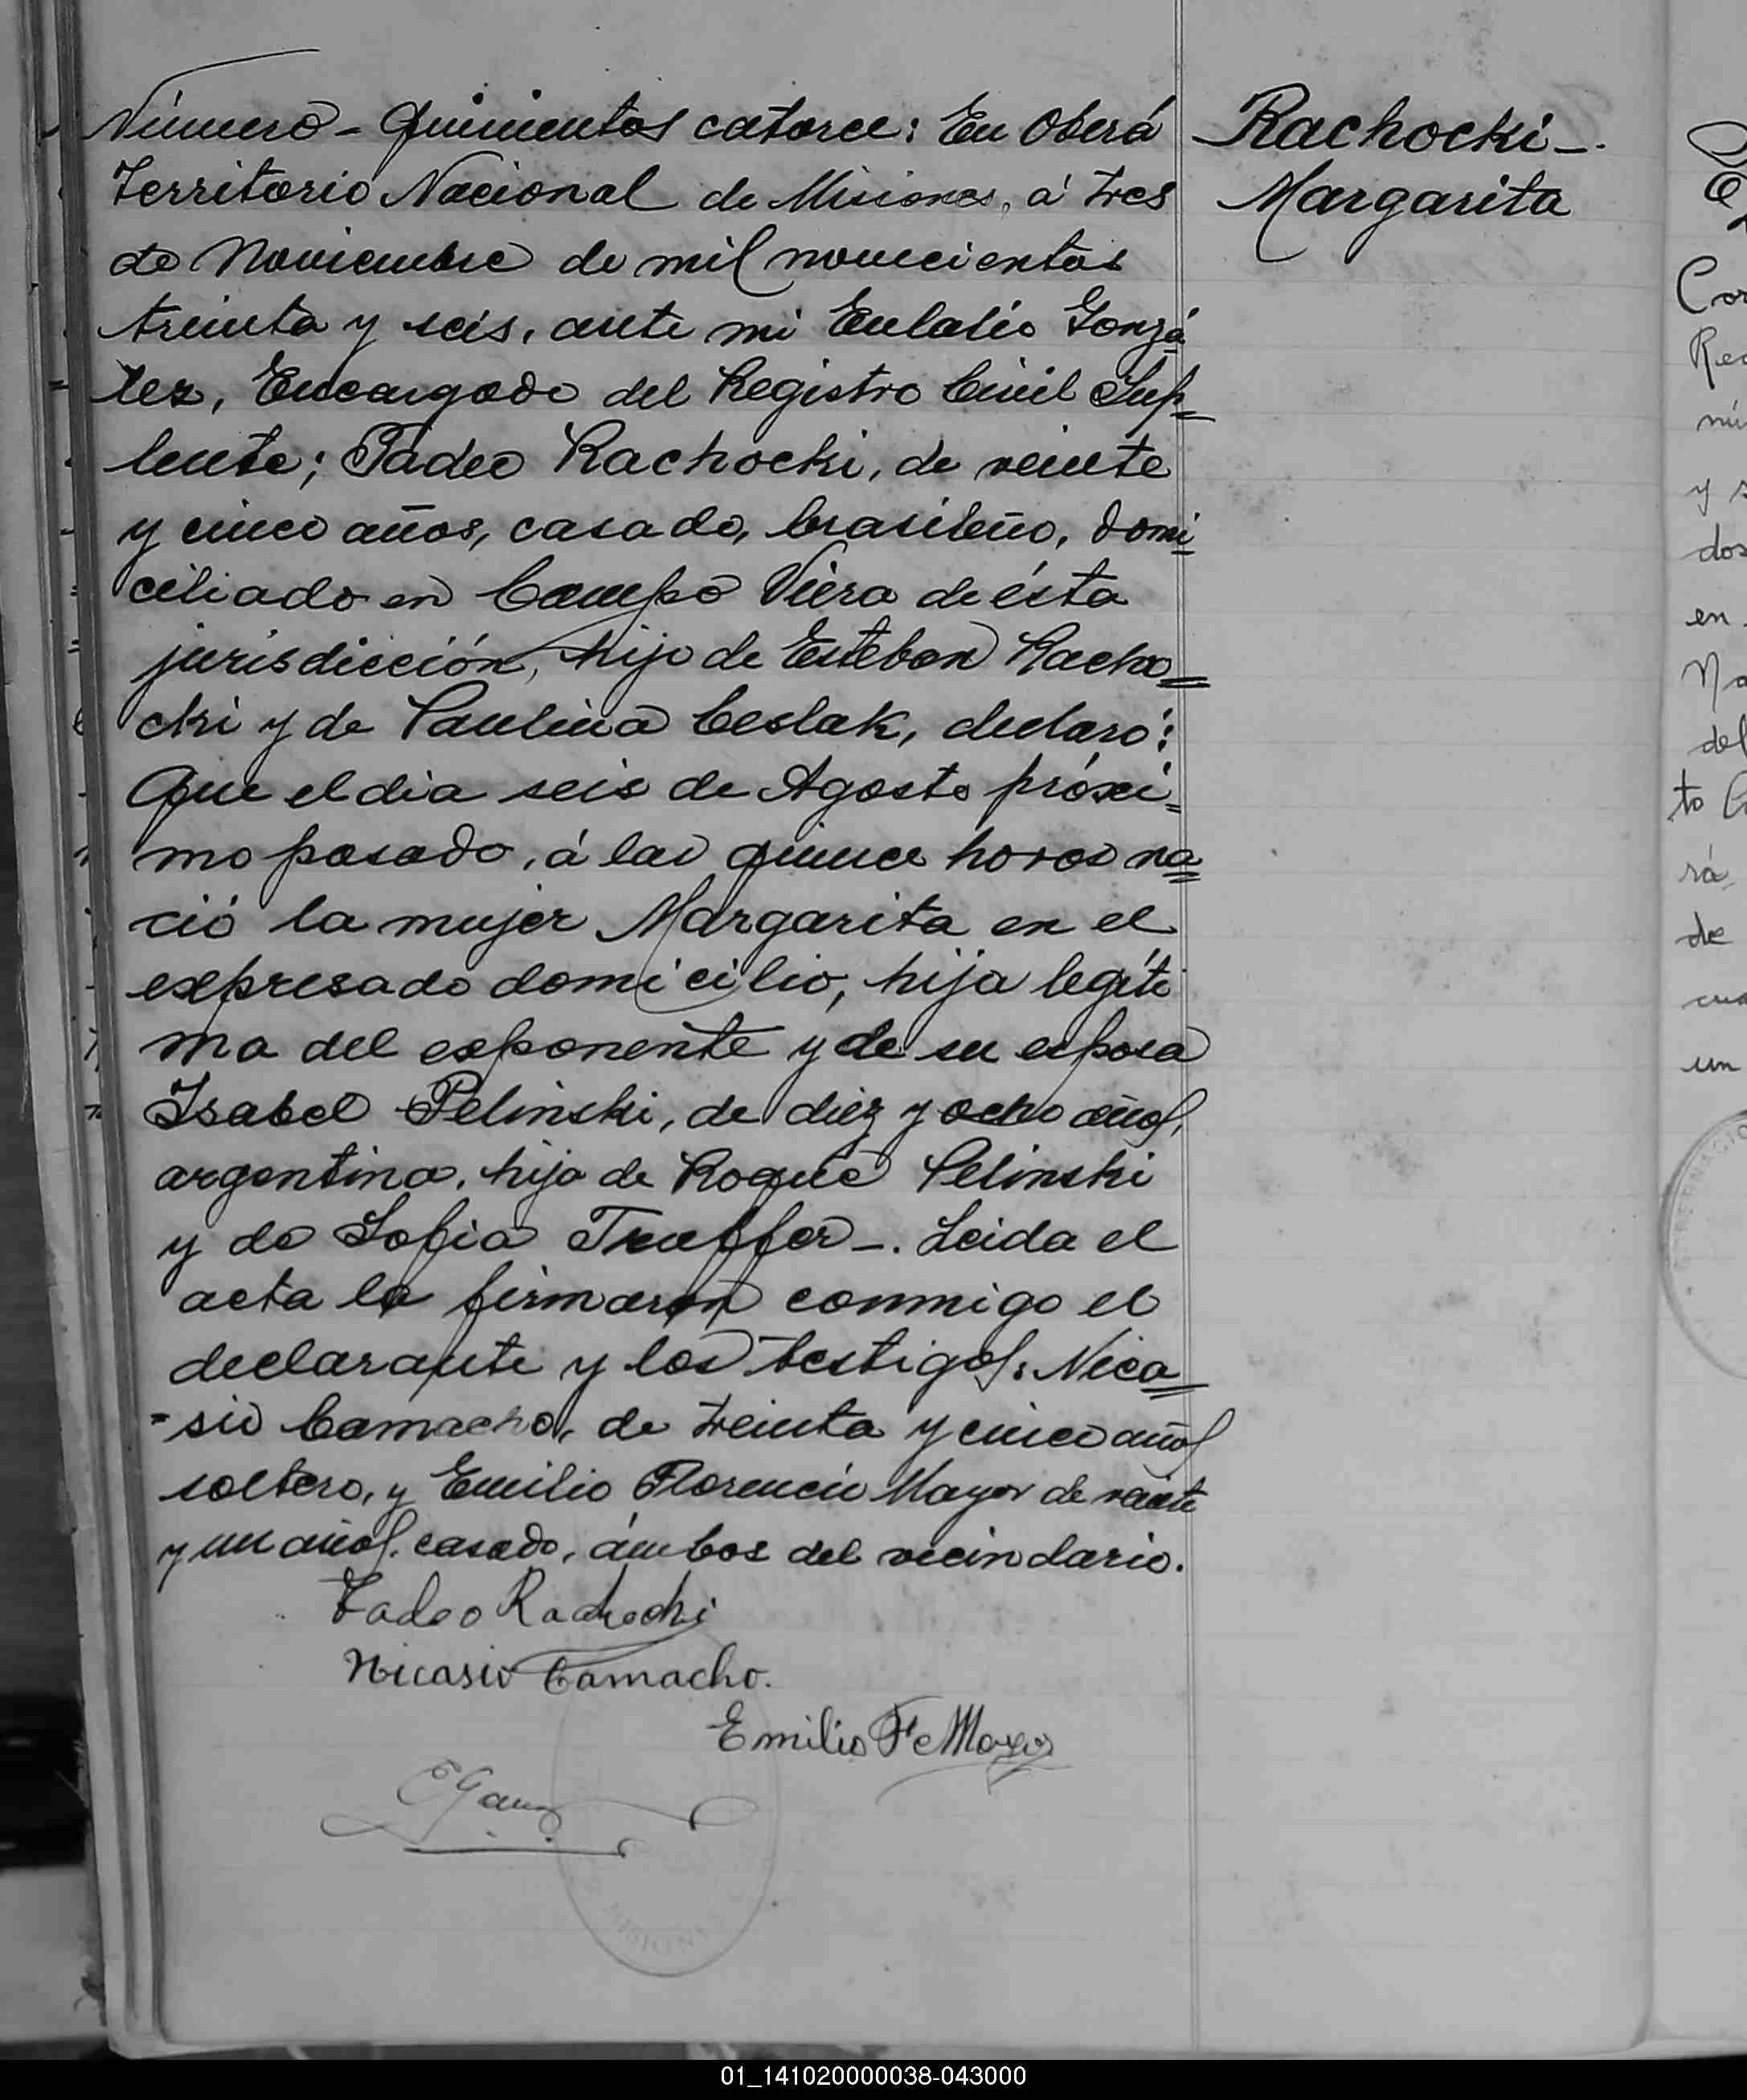 Número - Quinientos catorce: En Oberá
Territorio Nacional de Misiones, á tres
de Noviembre de mil novecientos
treinta y seis, ante mi Eulalio Gonzá
lez, Encargado del Registro Civil Sup-
lente; Tadeo Rachocki, de veinte
y cinco años, casado, brasileño, domi
ciliado en Campo Viera de ésta
jurisdicción, hijo de Esteban Racho=
cki y de Paulina Ceslak, declaró:
Que el dia seis de Agosto próxi=
mo pasado, á las quince horas na
ció la mujer Margarita en el
expresado domicilio, hija legíti
ma del exponente y de su esposa
Isabel Pelinski, de diez y ocho años,
argentina, hija de Roque Pelinski
y de Sofia Treffer-. Leida el
acta la firmaron conmigo el
declarante y los testigos: Nica=
=sio Camacho, de treinta y cinco años
soltero, y Emilio Florencio Mayor de veinte
y un años, casado, ámbos del vecindario.
Tadeo Rachocki
Nicasio Camacho.
Emilio F Mayor
Rachocki-.
Margarita
Cor
Re
nú
y s
dos
en
Na
del
to C
rá
de
cua
un
MISIONES
01_141020000038-043000